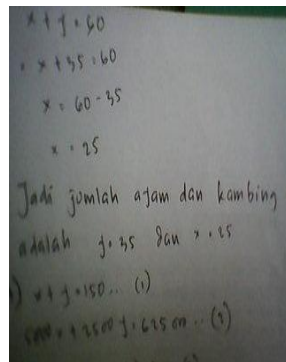 x + y = 60
x + 35 = 60
x = 60 - 35
x = 25
Jadi jumlah ayam dan kambing
adalah y = 35 dan x = 25
) x + y = 150 ... (1)
5000 x + 2500 y = 625000 ... (2)